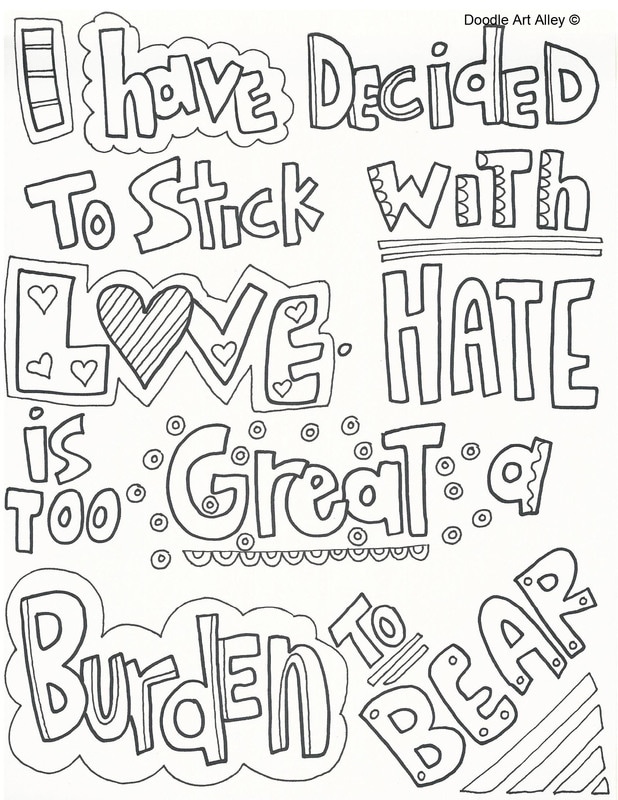 Doodle Art Alley ©
I have DeciDeD
To Stick WiTh
LOVE. HATE
is
TOO GreaT a
BurdEn To BEAR